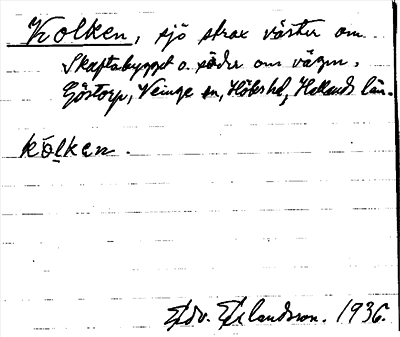 Kolken, sjö strax väster om
Skaftabygget o. söder om vägen.
Göstorp, Veinge sn, Höks hd, Hallands län.
kɔ̀lkɛn.
Edv. Erlandsson. 1936.